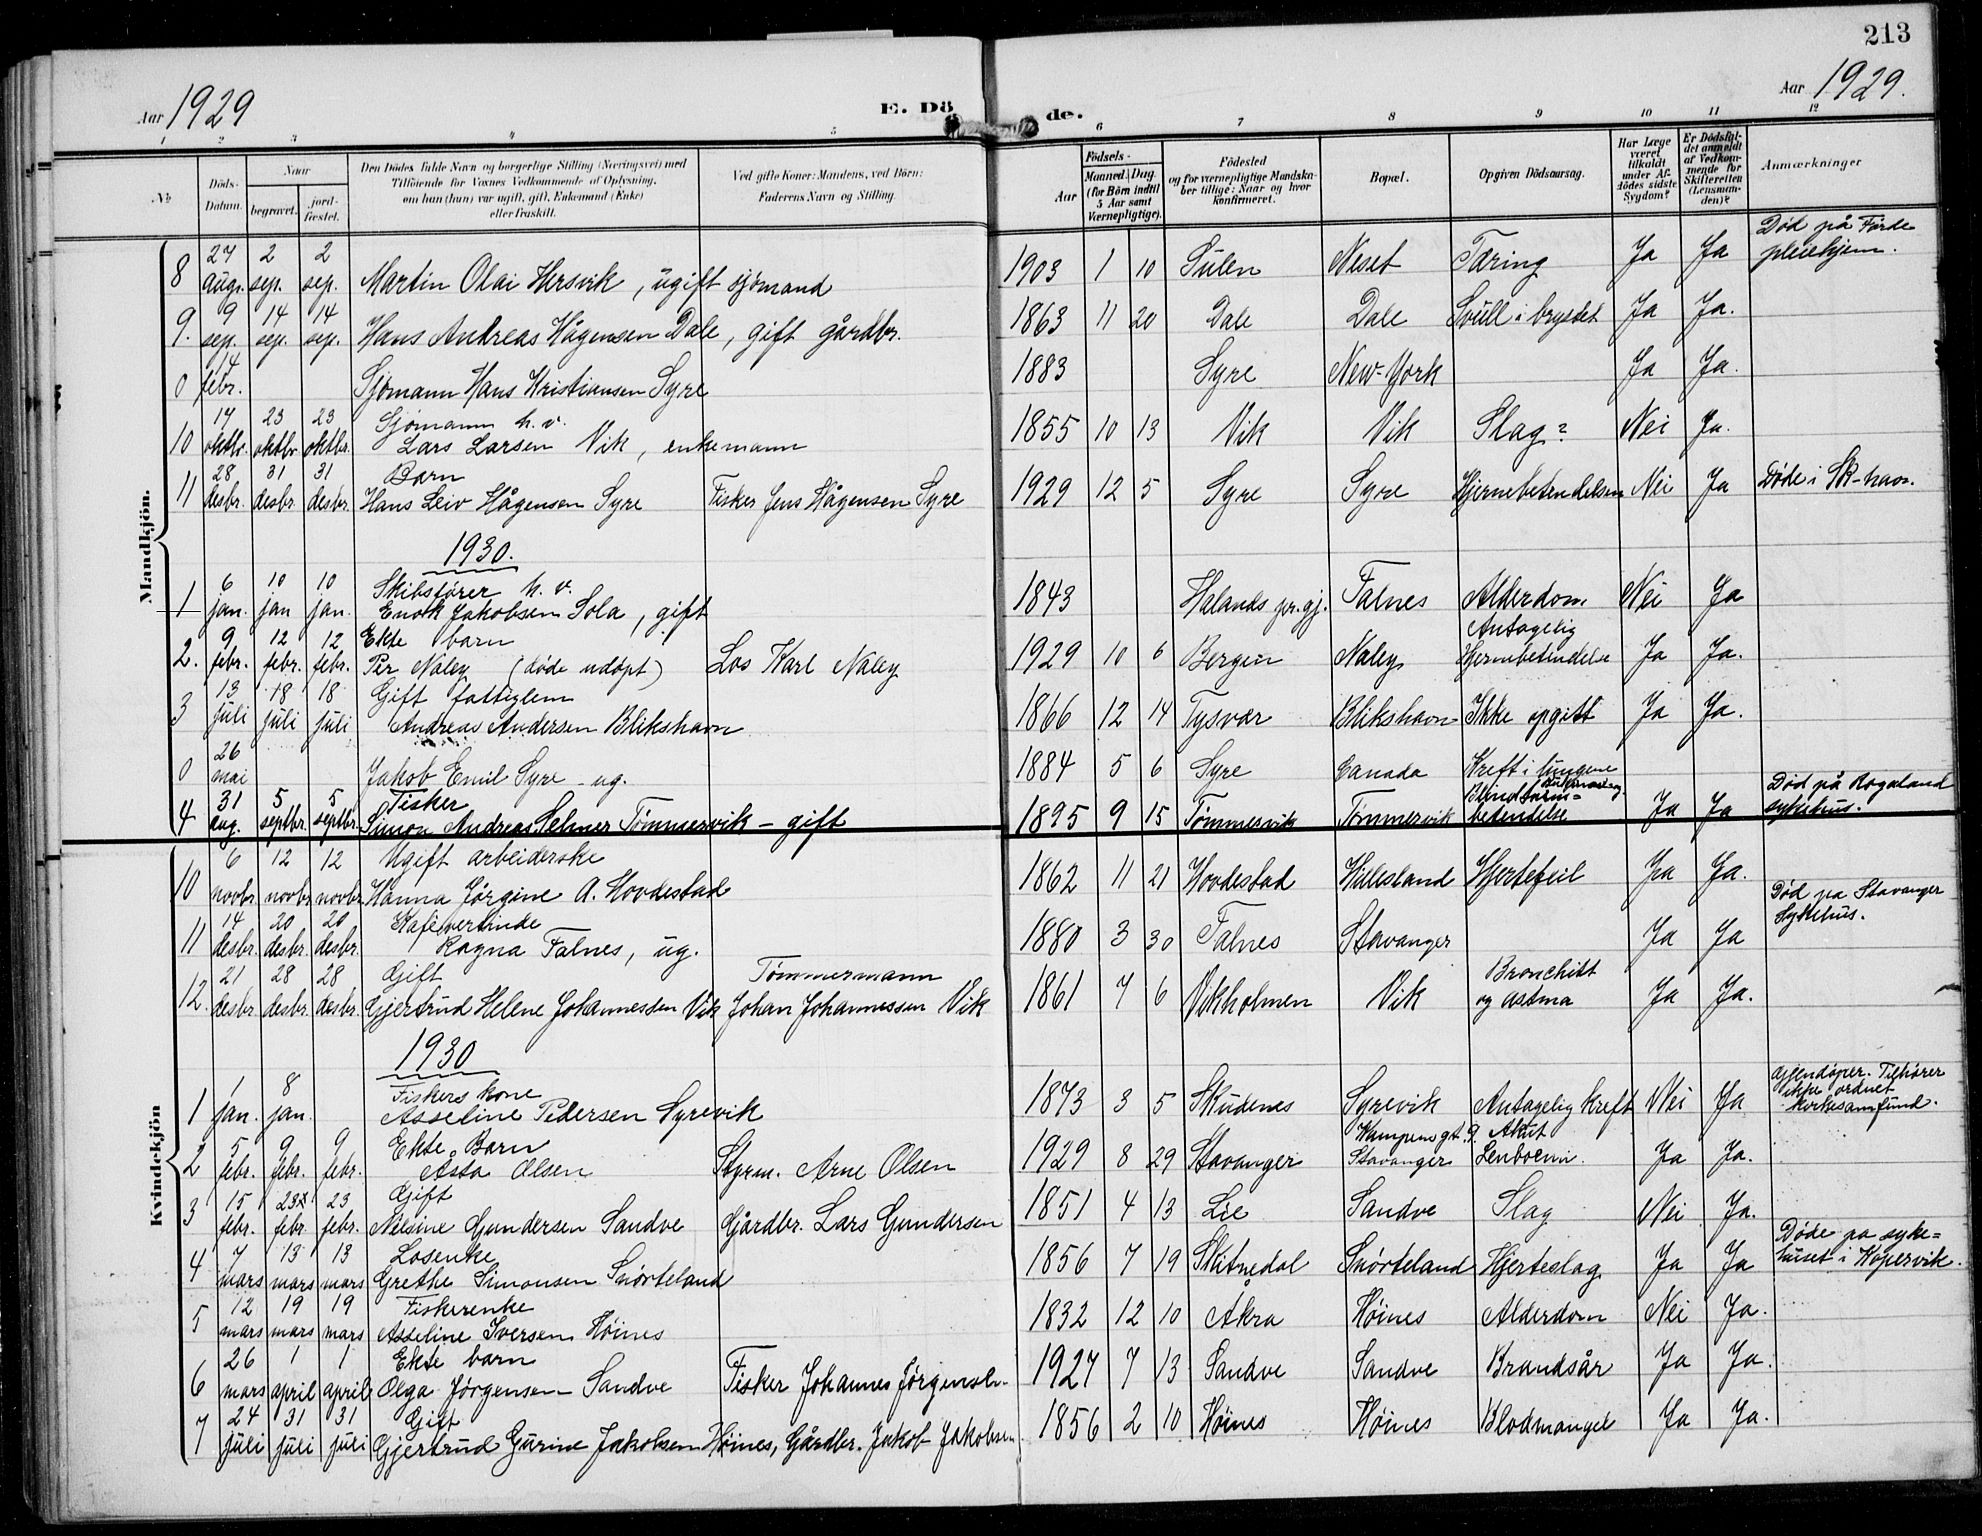 213
Aar 1929
E. Dö de.
Aar 1929.
1 2 3 4 5 6 7 8 9 10 11 12
№
Döds-Datum.
Naar
begravet.
jord-fæstet.
Den Dödes fulde Navn og borgerlige Stilling (Næringsvei) med
Tilföiende for Voxnes Vedkommende af Oplysning,
om han (hun) var ugift, gift, Enkemand (Enke)
eller fraskilt.
Ved gifte Koner: Mandens, ved Börn:
Faderens Navn og Stilling.
Födsels-
Aar
Maaned. Dag.
(for Börn indtil
5 Aar samt
Værnepligtige).
Födested
og for værnepligtige Mandska-
ber tillige: Naar og hvor
konfirmeret.
Bopæl.
Opgiven Dödsaarsag.
Har Læge
været
tilkaldt
under Af-
dödes sidste
Sygdom?
Er Dödsfal-
det anmeldt
af Vedkom-
mende for
Skifteretten
(Lensman-
den)?
Anmærkninger
Mandkjön.
8 27 aug. 2 sep. 2 sep. Martin Olai Hersvik, ugift sjömand 1903 1 10 Sulen Neset Tæring Ja Ja Død på Förde pleiehjem.
9. 9 sep. 14 sep. 14 sep. Hans Andreas Hågensen Dale, gift gårdbr. 1863 11 20 Dale Dale Svull i brystet Ja Ja.
0 14 febr. Sjømann Hans Kristiansen Syre 1883 Syre New-York Ja Ja.
10 17 oktbr. 23 oktbr. 23 oktbr. Sjømann h. v. Lars Larsen Vik, enkemann 1855 10 13 Vik Vik Slag? Nei Ja.
11 28 desbr. 31 desbr. 31 desbr. Barn Hans Leiv Hågensen Syre Fisker Jens Hågensen Syre 1929 12 5 Syre Syre Hjernebetendelsen Nei Ja Døde i Sk-havn.
1930.
1 6 jan. 10 jan 10 jan. Skibsfører h. v. Enok Jakobsen Sola, gift 1843 Halands pr.gj. Falnes Alderdom Nei Ja
2. 9 febr. 12 febr. 12 febr. Ekte barn Per Naley (døde udøpt) Los Karl Naley 1929 10 6 Bergen Naley Antagelig Hjernebetendelse Ja Ja.
3 13 juli 18 juli 18 juli Gift fattiglem Andreas Andersen Blikshavn 1866 12 14 Tysvær Blikshavn Ikke opgitt Ja Ja.
0 26 mai Jakob Emil Syre - ug. 1884 5 6 Syre Canada Kreft i lungene
4 31 aug. 5 septbr. 5 septbr. Fisker Simon Andreas Selmer Tømmervik - gift 1895 9 15 Tømmervik Tømmervik Blindtarm= betendelse Ja Ja Død på Rogaland sykehus.
Kvindekjön
10 6 novbr. 12 novbr. 12 novbr. Ugift arbeiderske Hanna Jørgine A. Hovdestad 1862 11 21 Hovdestad Hillesland Hjertefeil Ja Ja.
11 14 desbr. 20 desbr. 20 desbr. Kafévertinde Ragna Falnes, ug. 1880 3 30 Falnes Stavanger Ja Ja Død på Stavanger Sykehus.
12. 21 desbr. 28 desbr. 28 desbr. Gift Gjertrud Helene Johannessen Vik Tømmermann Johan Johannessen Vik 1861 7 6 Vikholmen Vik Bronchitt og astma Ja Ja.
1930
1 1 jan. 8 jan. Fiskers kone Asseline Pedersen Syrevik 1873 3 5 Skudenes Syrevik Antagelig kreft Nei Ja Gjendøper. Tilhører ikke ordnet kirkesamfund.
2 5 febr. 9 febr. 9 febr. Ekte Barn Åsta Olsen Styrm. Arne Olsen 1929 8 29 Stavanger Kampensgt. 9. Stavanger Akut Ja Ja.
3 15 febr. 23 febr. 23 febr. Gift Nilsine Gundersen Sandve Gårdbr. Lars Gundersen 1851 4 13 Lie Sandve Slag Nei Ja.
4 7 mars 13 mars 13 mars Losenke Grethe Simonsen Snörteland 1856 7 19 Slitnedal Snörteland Hjerteslag Ja Ja Døde på syke= huset i Kopervik.
5 12 mars 19 mars 19 mars Fiskerenke Asseline Iversen Høines 1832 12 10 Åkra Høines Alderdom Nei Ja.
6 26 mars 1 april 1 april Ekte barn Olga Jørgensen Sandve Fisker Johannes Jørgensen 1927 7 13 Sandve Sandve Brandsår Ja Ja.
7 24 juli 31 juli 31 juli Gift Gjertrud Gurine Jakobsen Høines, Gårdbr. Jakob Jakobsen 1856 2 10 Høines Høines Blodmangel Ja Ja.